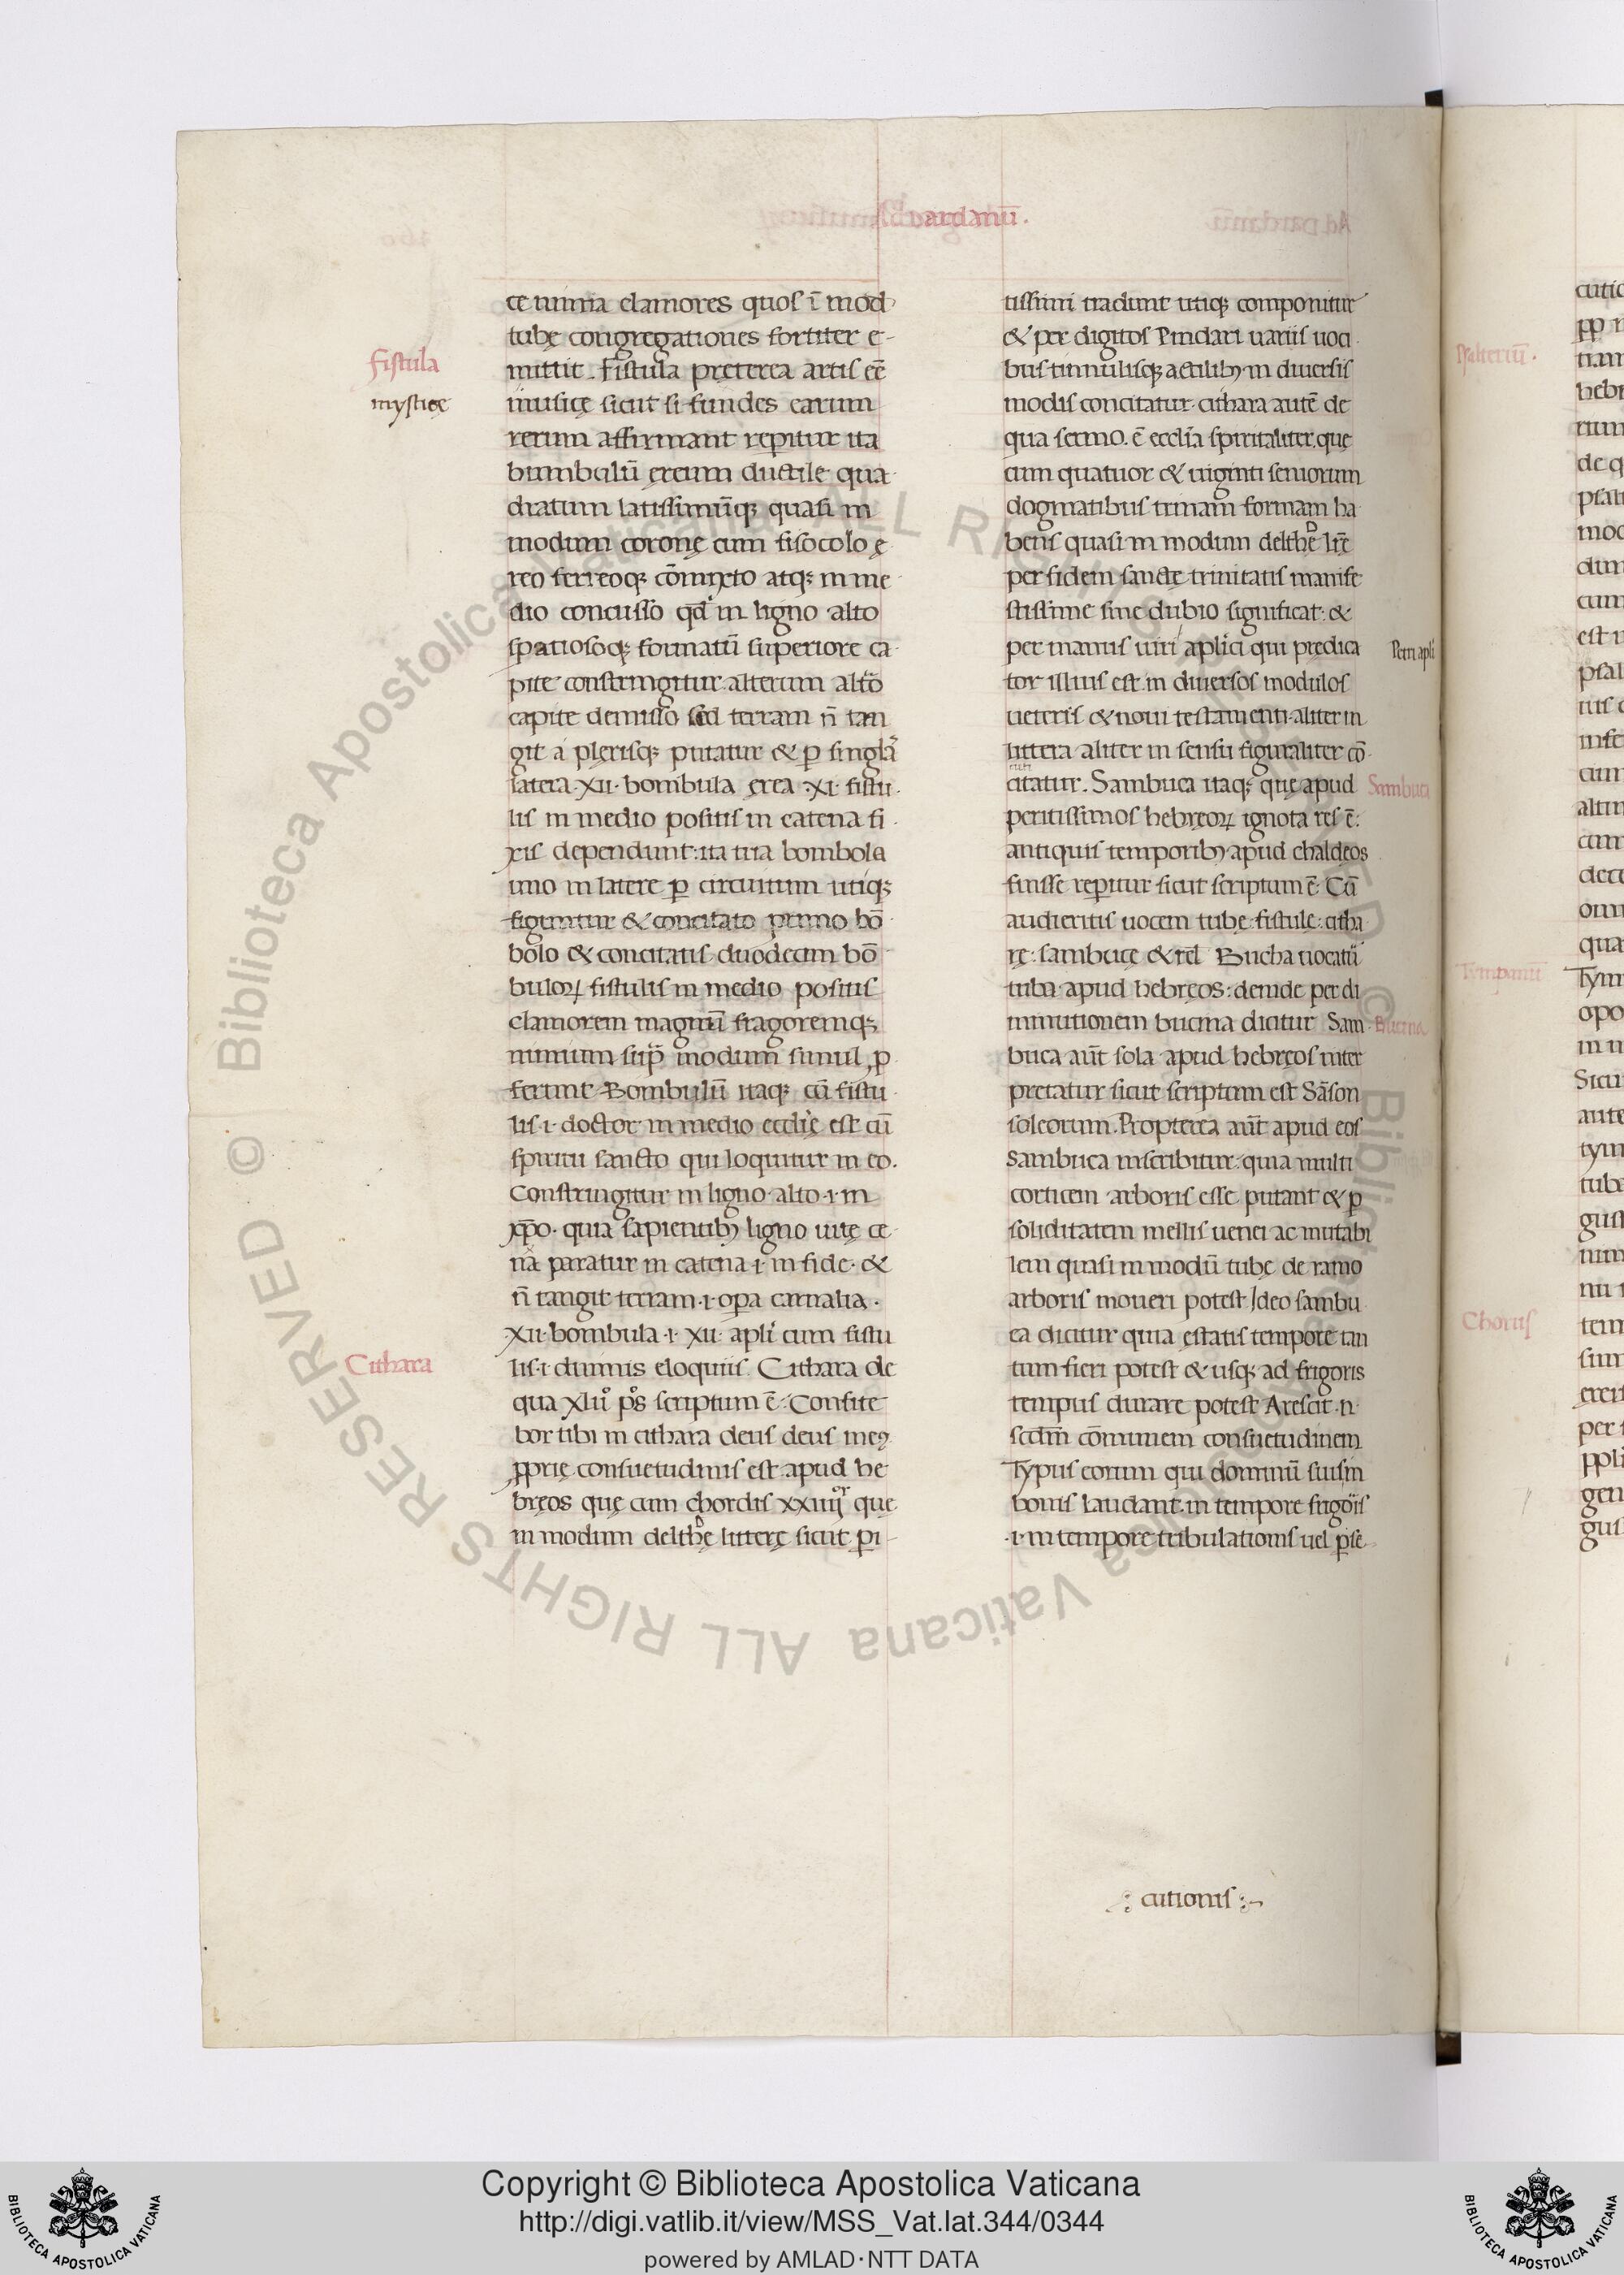 dardanū.
Fistula
mysticę
ce nimia clamores quos ī mod
tubę congregationes fortiter e-
mittit. Fistula pręterea artis eē
musicę sicut si fundes earum
rerum affirmant reperitur ita
bumbulū ęreum ductile qua
dratum latissimūq; quasi in
modum coronę cum fisocolo ę
reo ferreoq; cōmixto atq; in me
dio concusso qđ in ligno alto
spatiosoq; formatū superiore ca
pite constringitur. alterum alto
capite demisso sed terram n̄ tan
git a plerisq; putatur & p singla
latera .XII. bombula ęrea .XI. fistu
lis in medio positis in catena fi
xis dependunt: ita tria bombola
uno in latere p circuitum utiq;
figuntur & concitato primo bō
bolo & concitatis duodecim bō
bulorꝝ fistulis in medio positis
clamorem magnū fragoremq;
nimium sup modum simul p
ferunt. Bombulū itaq; cū fistu
lis .i. doctor in medio ecclię est cū
spiritu sancto qui loquitur in eo.
Constringitur in ligno alto .i. in
xp̄o. quia sapientibꝫ ligno uitę ce
na paratur in catena .i. in fide. &
n̄ tangit terram .i. opa carnalia.
XII. bombula .i. XII. apli cum fistu
lis .i. diuinis eloquiis. Cithara de
Cithara
qua XLII° ps scriptum ē. Confite
bor tibi in cithara deus deus meꝰ
ꝓprię consuetudinis est apud he
bręos que cum chordis XXIIII°r que
in modum delthę litterę sicut pi-
tissimi tradunt utiq; componitur
& per digitos Pindari uariis uoci
bus tinnulisq; actilibꝫ in diuersis
modis concitatur. cithara autē de
qua sermo. ē ecclia spiritaliter. quę
cum quatuor & uiginti seniorum
dogmatibus trinam formam ha
bens quasi in modum delthę lrē
per fidem sanctę trinitatis manife
stissime sine dubio significat. &
per manus uiri aplici qui prędica
Petri apli
tor illius est. in diuersos modulos
ueteris & noui testamenti. aliter in
littera aliter in sensu figuraliter cō
citatur. Sambuca itaq; quę apud
Sambuca
peritissimos hebręorꝝ ignota res ē:
antiquis temporibꝫ apud chaldęos
fuisse reperitur sicut scriptum ē. Cū
audieritis uocem tubę. fistulę. citha
rę. sambucę & rel̄. Bucba uocatū
tuba apud hebręos: deinde per di
minutionem bucina dicitur. Sam
Bucina
buca aūt sola apud hebręos inter
pretatur sicut scriptum est Sāson
soleorum. Propterea aūt apud eos
sambuca inscribitur. quia multi
corticem arboris esse putant & p
soliditatem mellis uenei ac mutabi
lem quasi in modū tubę de ramo
arboris moueri potest. Ideo sambu
ca dicitur quia ęstatis tempore tan
tum fieri potest & usq; ad frigoris
tempus durare potest. Arescit n.
scdm̄ cōmunem consuetudinem
Typus eorum qui dominū suis in
bonis laudant. in tempore frigoris
.i. in tempore tribulationis uel pse
cutionis
Psalteriū.
Tympanū
Chorus
Copyright © Biblioteca Apostolica Vaticana
http://digi.vatlib.it/view/MSS_Vat.lat.344/0344
powered by AMLAD·NTT DATA
BIBLIOTECA APOSTOLICA VATICANA
BIBLIOTECA APOSTOLICA VATICANA
© Biblioteca Apostolica Vaticana ALL RIGHTS RESERVED © Biblioteca Apostolica Vaticana ALL RIGHTS RESERVED